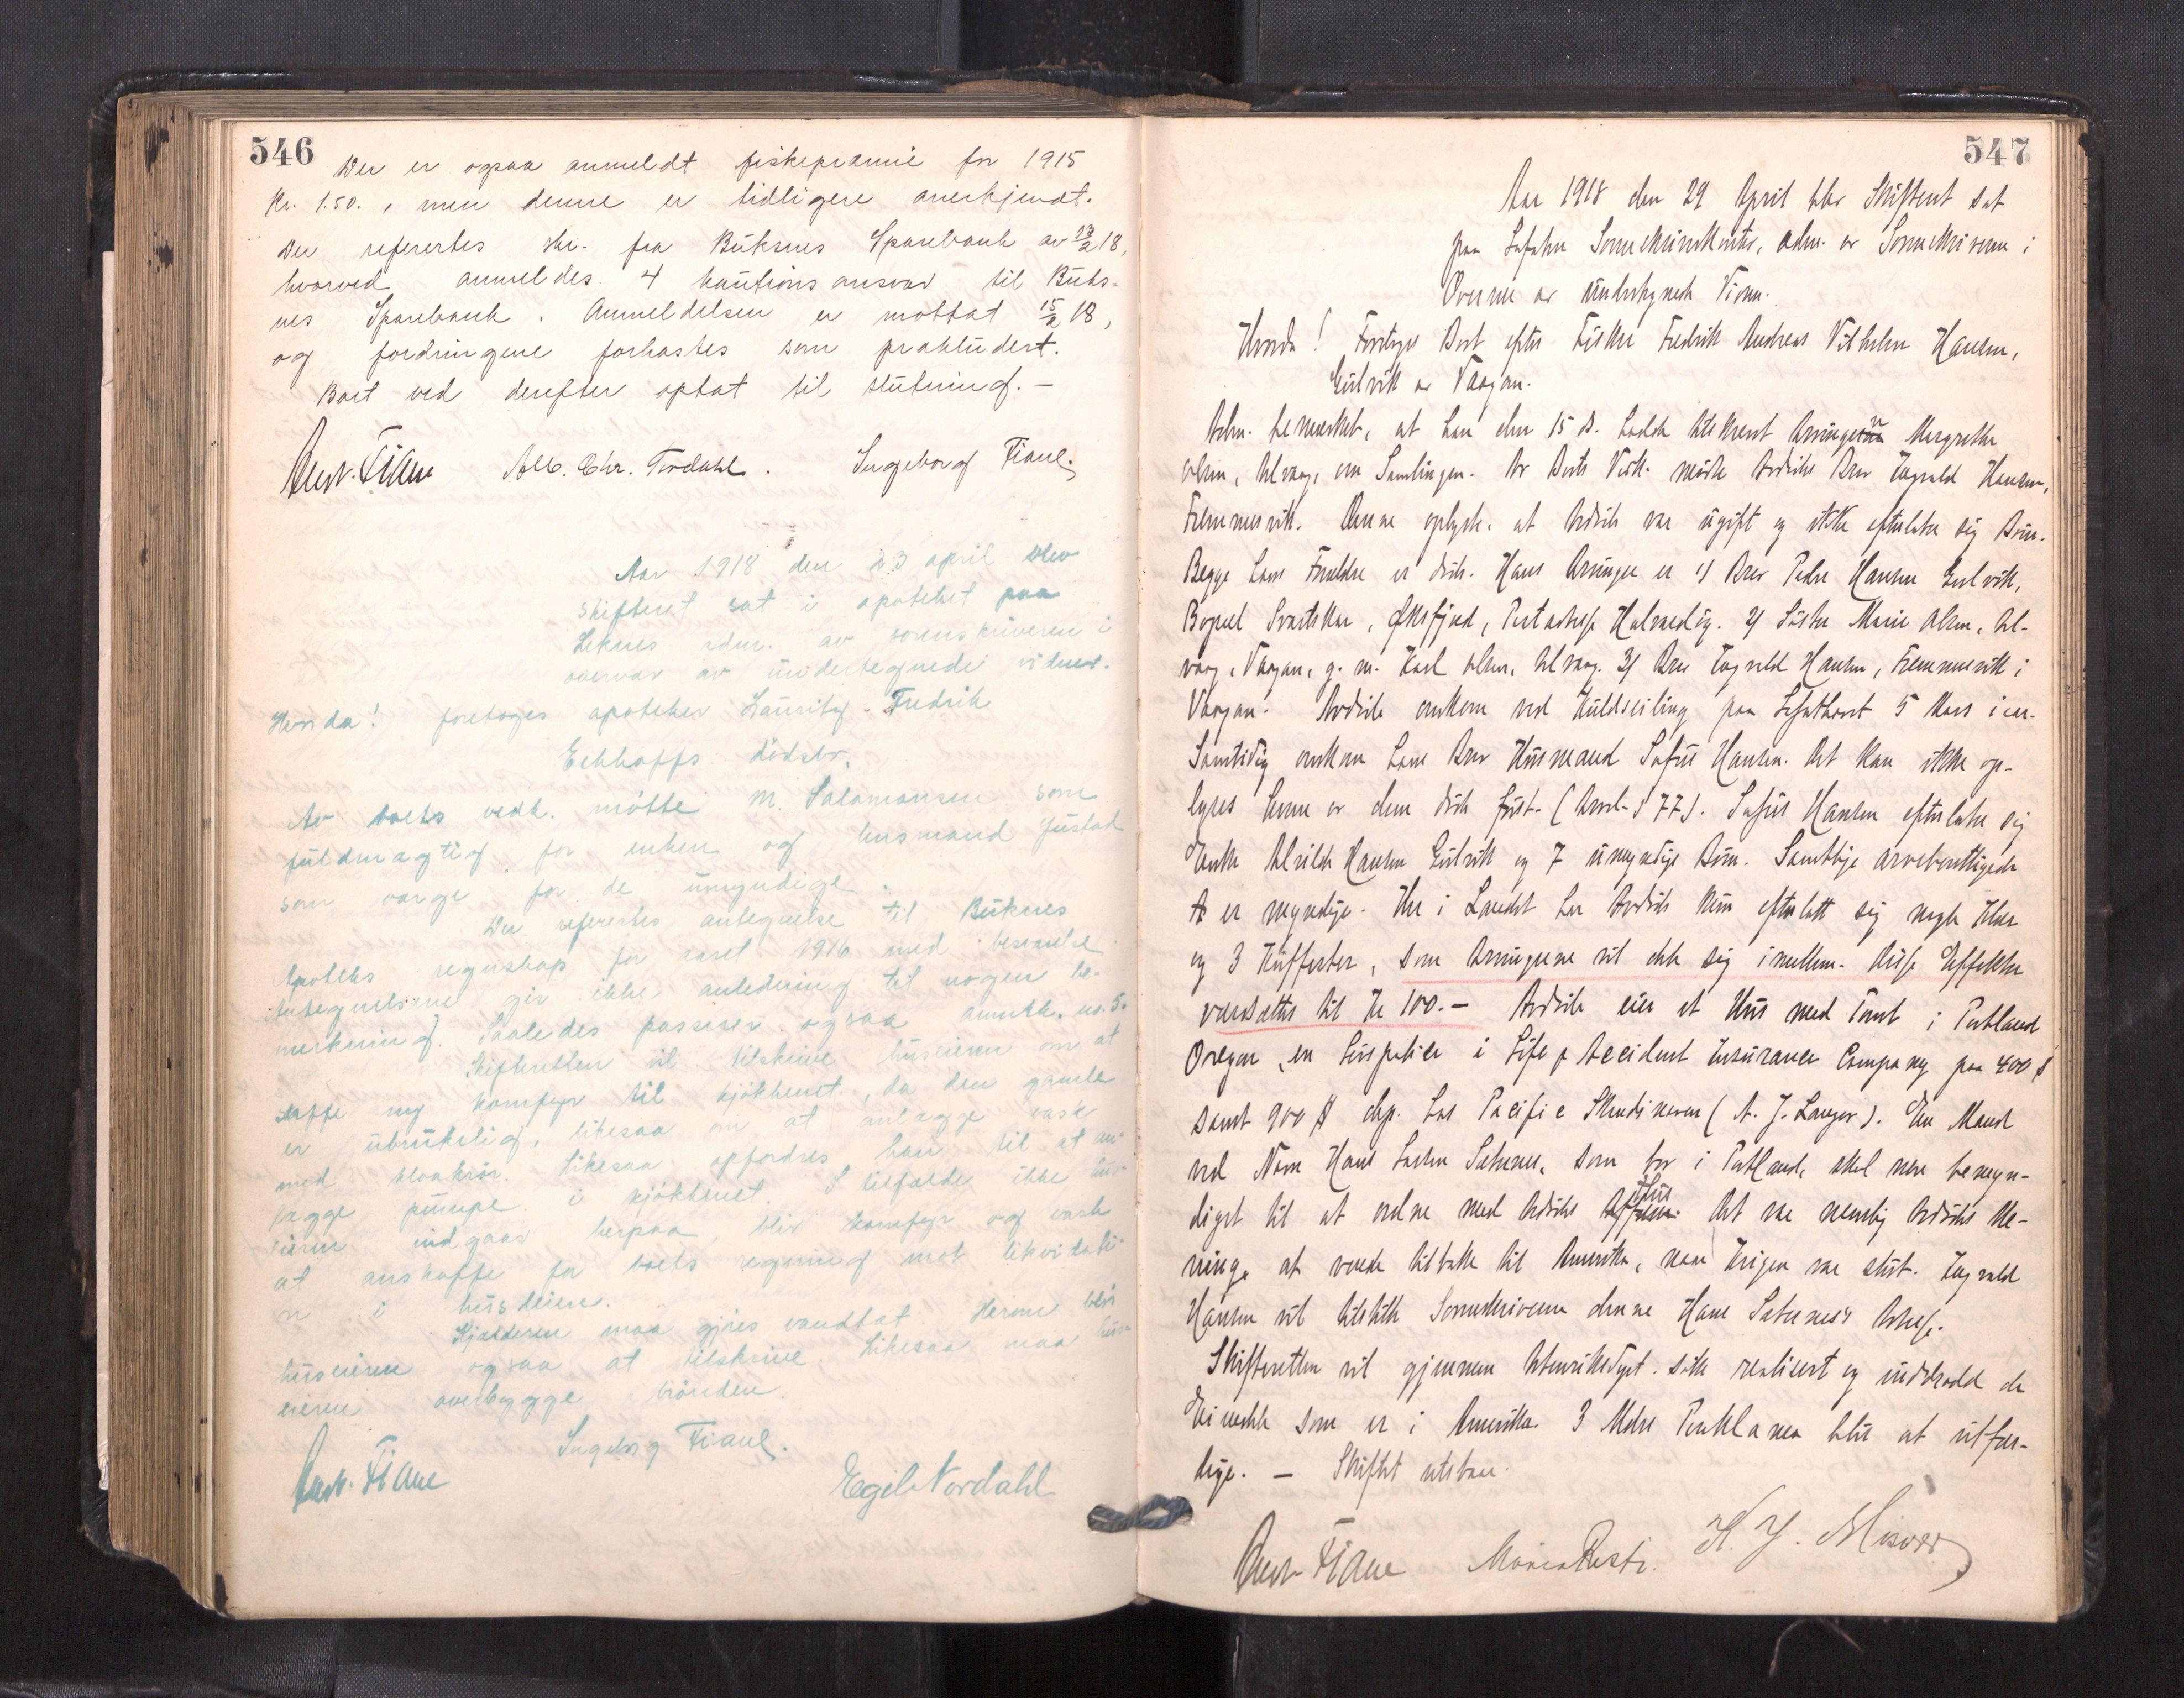 546
Der er ogsaa anmeldt fiskepræmie for 1915
Kr. 1.50., men denne er tidligere anerkjendt.
Der refertes skr. fra Buksnes Sparebank av 13/2 18,
hvorved anmeldes 4 kautionsansvar til Buks-
nes Sparebank. Anmeldelsen er mottat 15/2 18,
og fordringene forkastes som prækludert.
Boet ved derefter optat til slutning. –
Alb. Chr. Nordahl. Ingeborg Fiane.
Aar 1918 den 23 april blev
skifteret sat i apoteket paa
Leknes adm. av sorenskriveren i
overvær av undertegnede vidner.
Hvorda! foretoges apoteker Lauritz Fredrik
Eckhoffs dødsbo.
Av boets vedk. møtte M. Salamonsen som
fuldmægtig for enken og lensmand Justad
som værge for de umyndige.
Der refertes antegnelse til Buksnes
Apoteks regnskap for aaret 1916 med besvarelse
Antegnelserne gir ikke anledning til nogen be-
merkning. Saaledes passerer ogsaa anmerk. no. 5.
Skifteretten vil tilskrive huseieren om at
skaffe ny komfyr til kjøkkenet, da den gamle
er ubrukelig, likesaa om at anlægge vask
med kloakrør. Likesaa opfordres han til at an-
lægge pumpe i kjøkkenet. I tilfælde ikke hus-
eieren indgaar herpaa, blir komfyr og vask
at anskaffe for boets regning mot likvidati-
on i husleien.
Kjælderen maa gjøres vandtæt. Herom blir
huseieren ogsaa at tilskrive. Likesaa maa hus-
eieren overbygge brønden.
Ingeborg Fiane.
Egil Nordahl
547
Aar 1918 den 29 April blev Skifteret sat
paa Lofoten Sorenskriverkontor, adm. av Sorenskriveren i
Overvær av undertegnede Vidner.
Hvorda! Foretoges Boet efter Fisker Fredrik Andreas Vilhelm Hansen,
Gulvik av Vaagan.
Adm. bemerket, at han den 15 ds. hadde tilskrevet Arvingen Margrethe
Olsen, om Samlingen. Av Boets Vedk. møtte Avdødes Bror Ingvald Hansen,
Denne oplyste, at Avdøde var ugift og ikke efterlater sig Børn.
Begge hans Forældre er døde. Hans Arvinger er 1) Bror Peder Hansen Gulvik,
Bopæl Svartskar, Øksfjord, Postadresse 2) Søster Marie Olsen,
Vaagan, g. m. Karl Olsen, 3) Bror Ingvald Hansen, i
Vaagan. Avdøde omkom ved Kuldseiling paa 5 Mars i aar.
Samtidig omkom hans Bror Husmand Sofus Hansen. Det kan ikke op-
lyses hvem av dem døde først. (Arvel. § 77). Sofus Hansen efterlater sig
Enke Hansen Gulvik og 7 umyndige Børn. Samtlige arveberettigede
er myndige. Her i Landet har Avdøde kun efterlatt sig nogle Klær
og 3 Kufferter, som Arvingerne vil dele sig imellem. Disse Effekter
værdsættes til Kr 100.– Avdøde eier et Hus med Tomt i Portland
Oregon, en Livspolice i Life & Accident Insurance Company paa 400 $
samt 900 $ dep. hos Pacific Skandinaven (A. J. Langer). En Mand
ved Navn Hans som bor i Portland, skal være bemyn-
diget til at ordne med Avdødes Hus. Det var nemlig Avdødes Me-
ning, at vende tilbake til Amerika, naar Krigen var slut. Ingvald
Hansen vil tilstille Sorenskriveren denne Hans Adresse.
Skifteretten vil gjennem Utenriksdept. søke realisert og inddrevet de
Eiendele som er i Amerika. 3 Mdrs Proklama blir at utfær-
dige. – Skiftet utstaar.